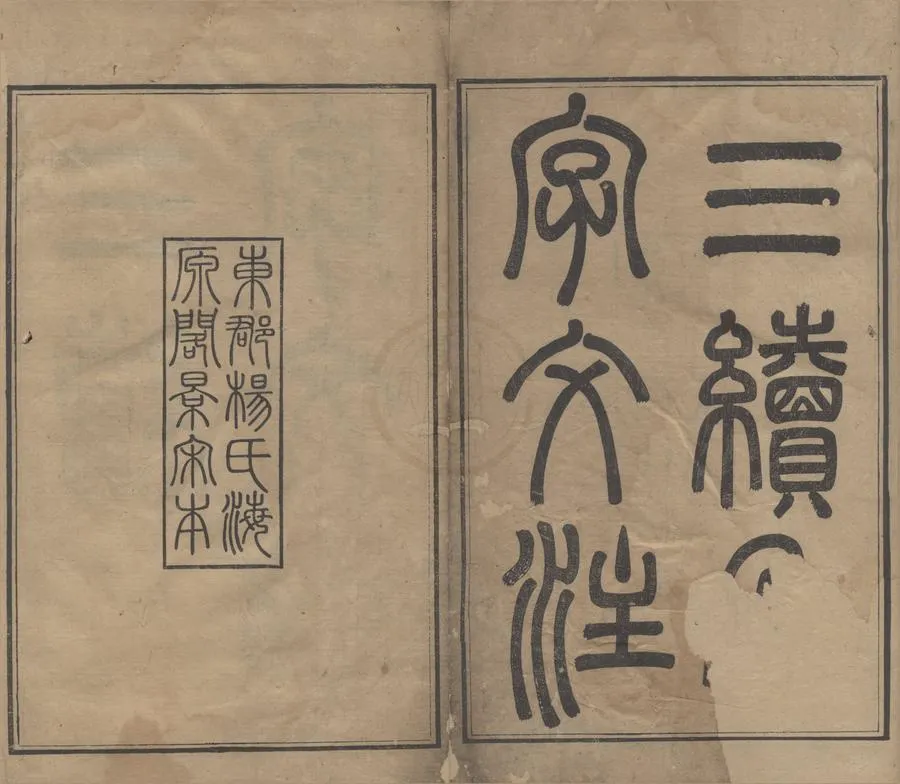 三續
字文注
東郡楊氏海
原閣景宋本